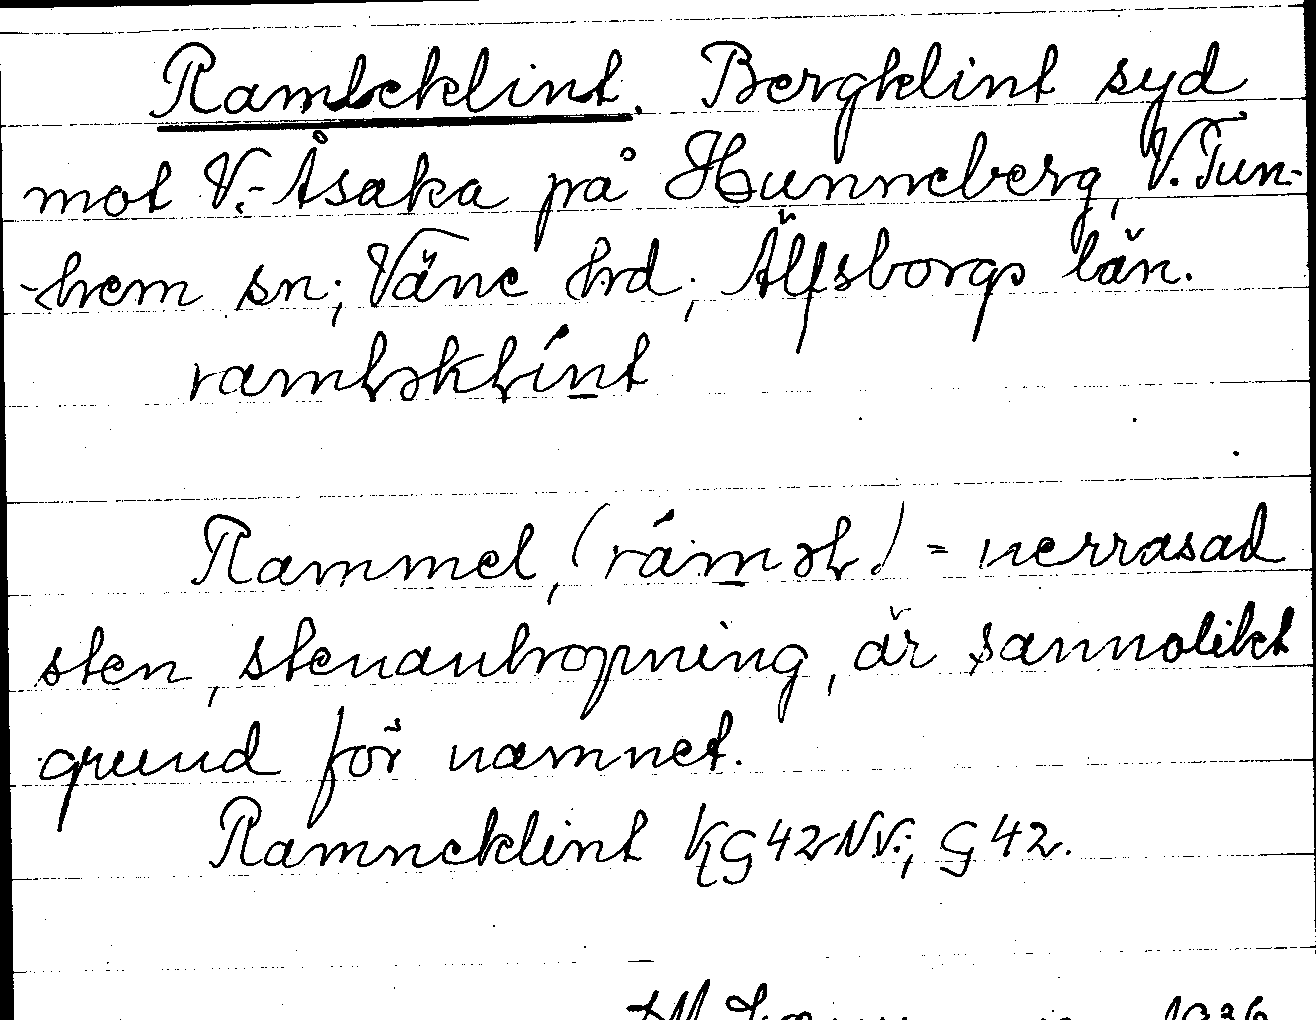 Rambeklint. Bergklint syd
mot V.-Åsaka på Hunneberg, V. Tun-
-hem sn; Väne hrd; Älfsborgs län.
rambəklint
Rammel, (ráməl) = nerrasad
sten, stenanhopning, är sannolikt
grund för namnet.
Ramneklint KG 42 NV.; G 42.
1936